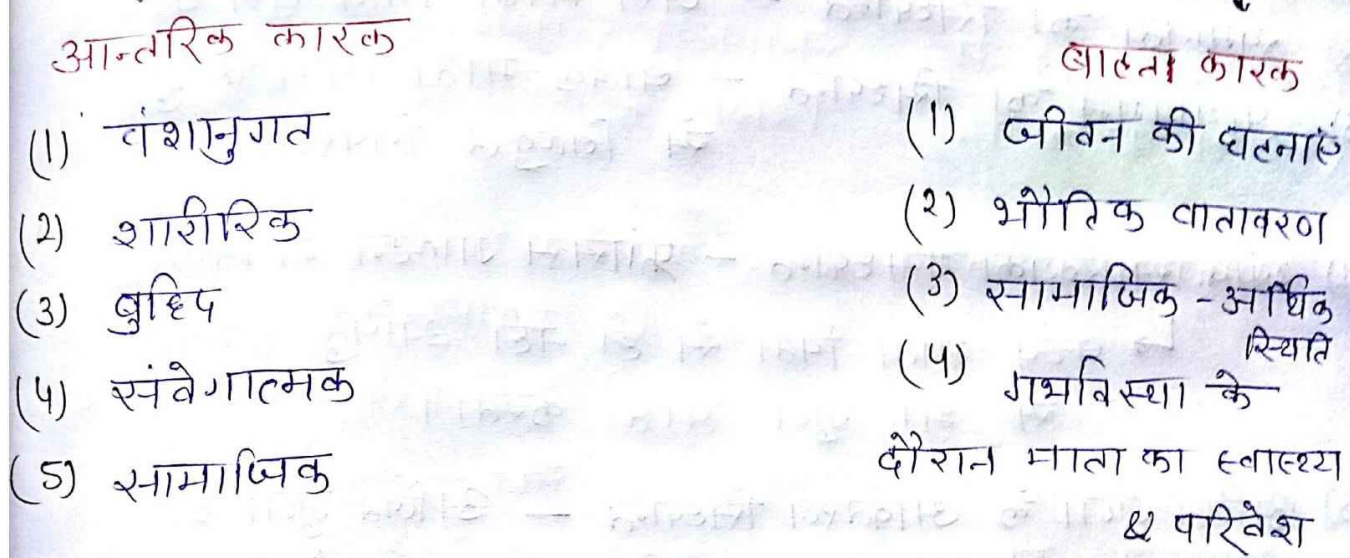 आन्तरिक कारक
(1) वंशानुगत
(2) शारीरिक
(3) बुद्धि
(4) संवेगात्मक
(5) सामाजिक
बाह्य कारक
(1) जीवन की घटनाएं
(2) भौतिक वातावरण
(3) सामाजिक - आर्थिक
स्थिति
(4) गर्भावस्था के
दौरान माता का स्वास्थ्य
& परिवेश